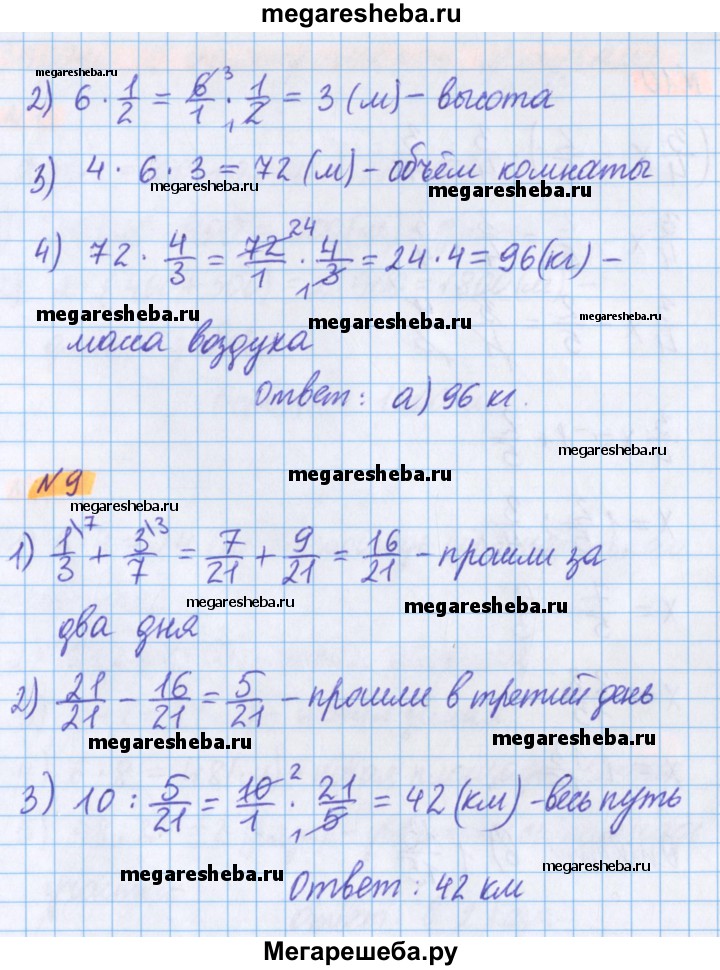 megaresheba.ru
megaresheba.ru
2) 6 · 1/2 = 6/1 · 1/2 = 3 (м) – высота
3) 4 · 6 · 3 = 72 (м) – объём комнаты
megaresheba.ru megaresheba.ru
4) 72 · 4/3 = 72/1 · 4/3 = 24 · 4 = 96 (кг) –
megaresheba.ru megaresheba.ru megaresheba.ru
масса воздуха
Ответ: а) 96 кг.
megaresheba.ru
№ 9 megaresheba.ru
megaresheba.ru
1) 1/3 \7 + 3/7 \3 = 7/21 + 9/21 = 16/21 – прошли за
megaresheba.ru megaresheba.ru
два дня
2) 21/21 – 16/21 = 5/21 – прошли в третий день
megaresheba.ru megaresheba.ru
3) 10 : 5/21 = 10/1 · 21/5 = 42 (км) – весь путь
megaresheba.ru megaresheba.ru
Ответ: 42 км
Мегарешеба.ру